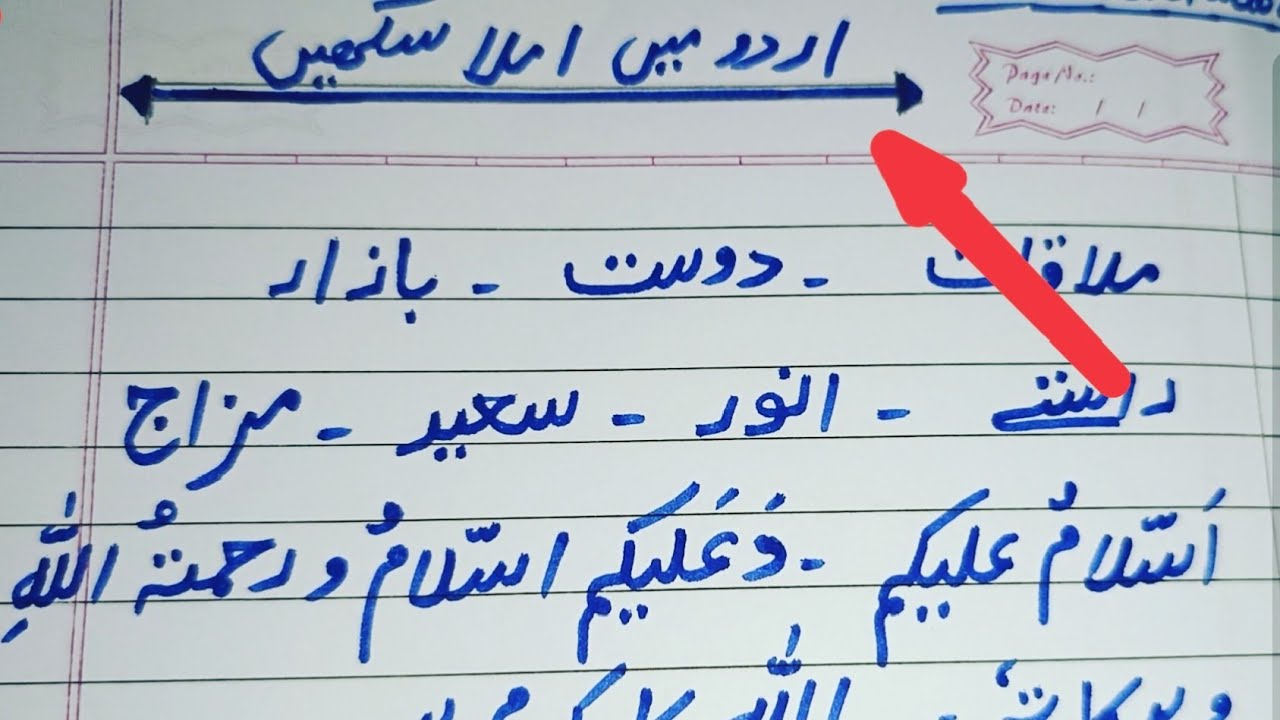 اردو میں املا سکھیں
Page No.:
Date: / /
ملاقات - دوست - بازار
راستے - انور - سعید - مزاج
اَسّلامُ علیکم - وَعَلیکم اسّلامُ و رحمتہُ اللّٰہِ
وبرکاتہٗ اللہ کا کرم ہے